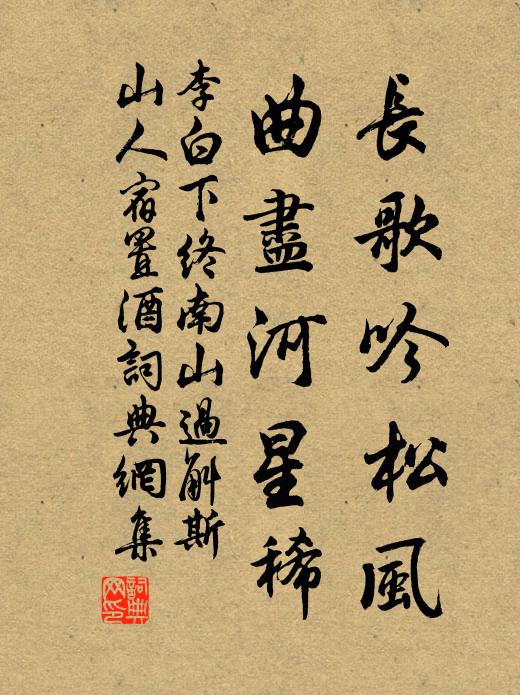 長歌吟松風
曲盡河星稀
李白下終南山過斛斯
山人宿置酒詞典網集
詞典
網印